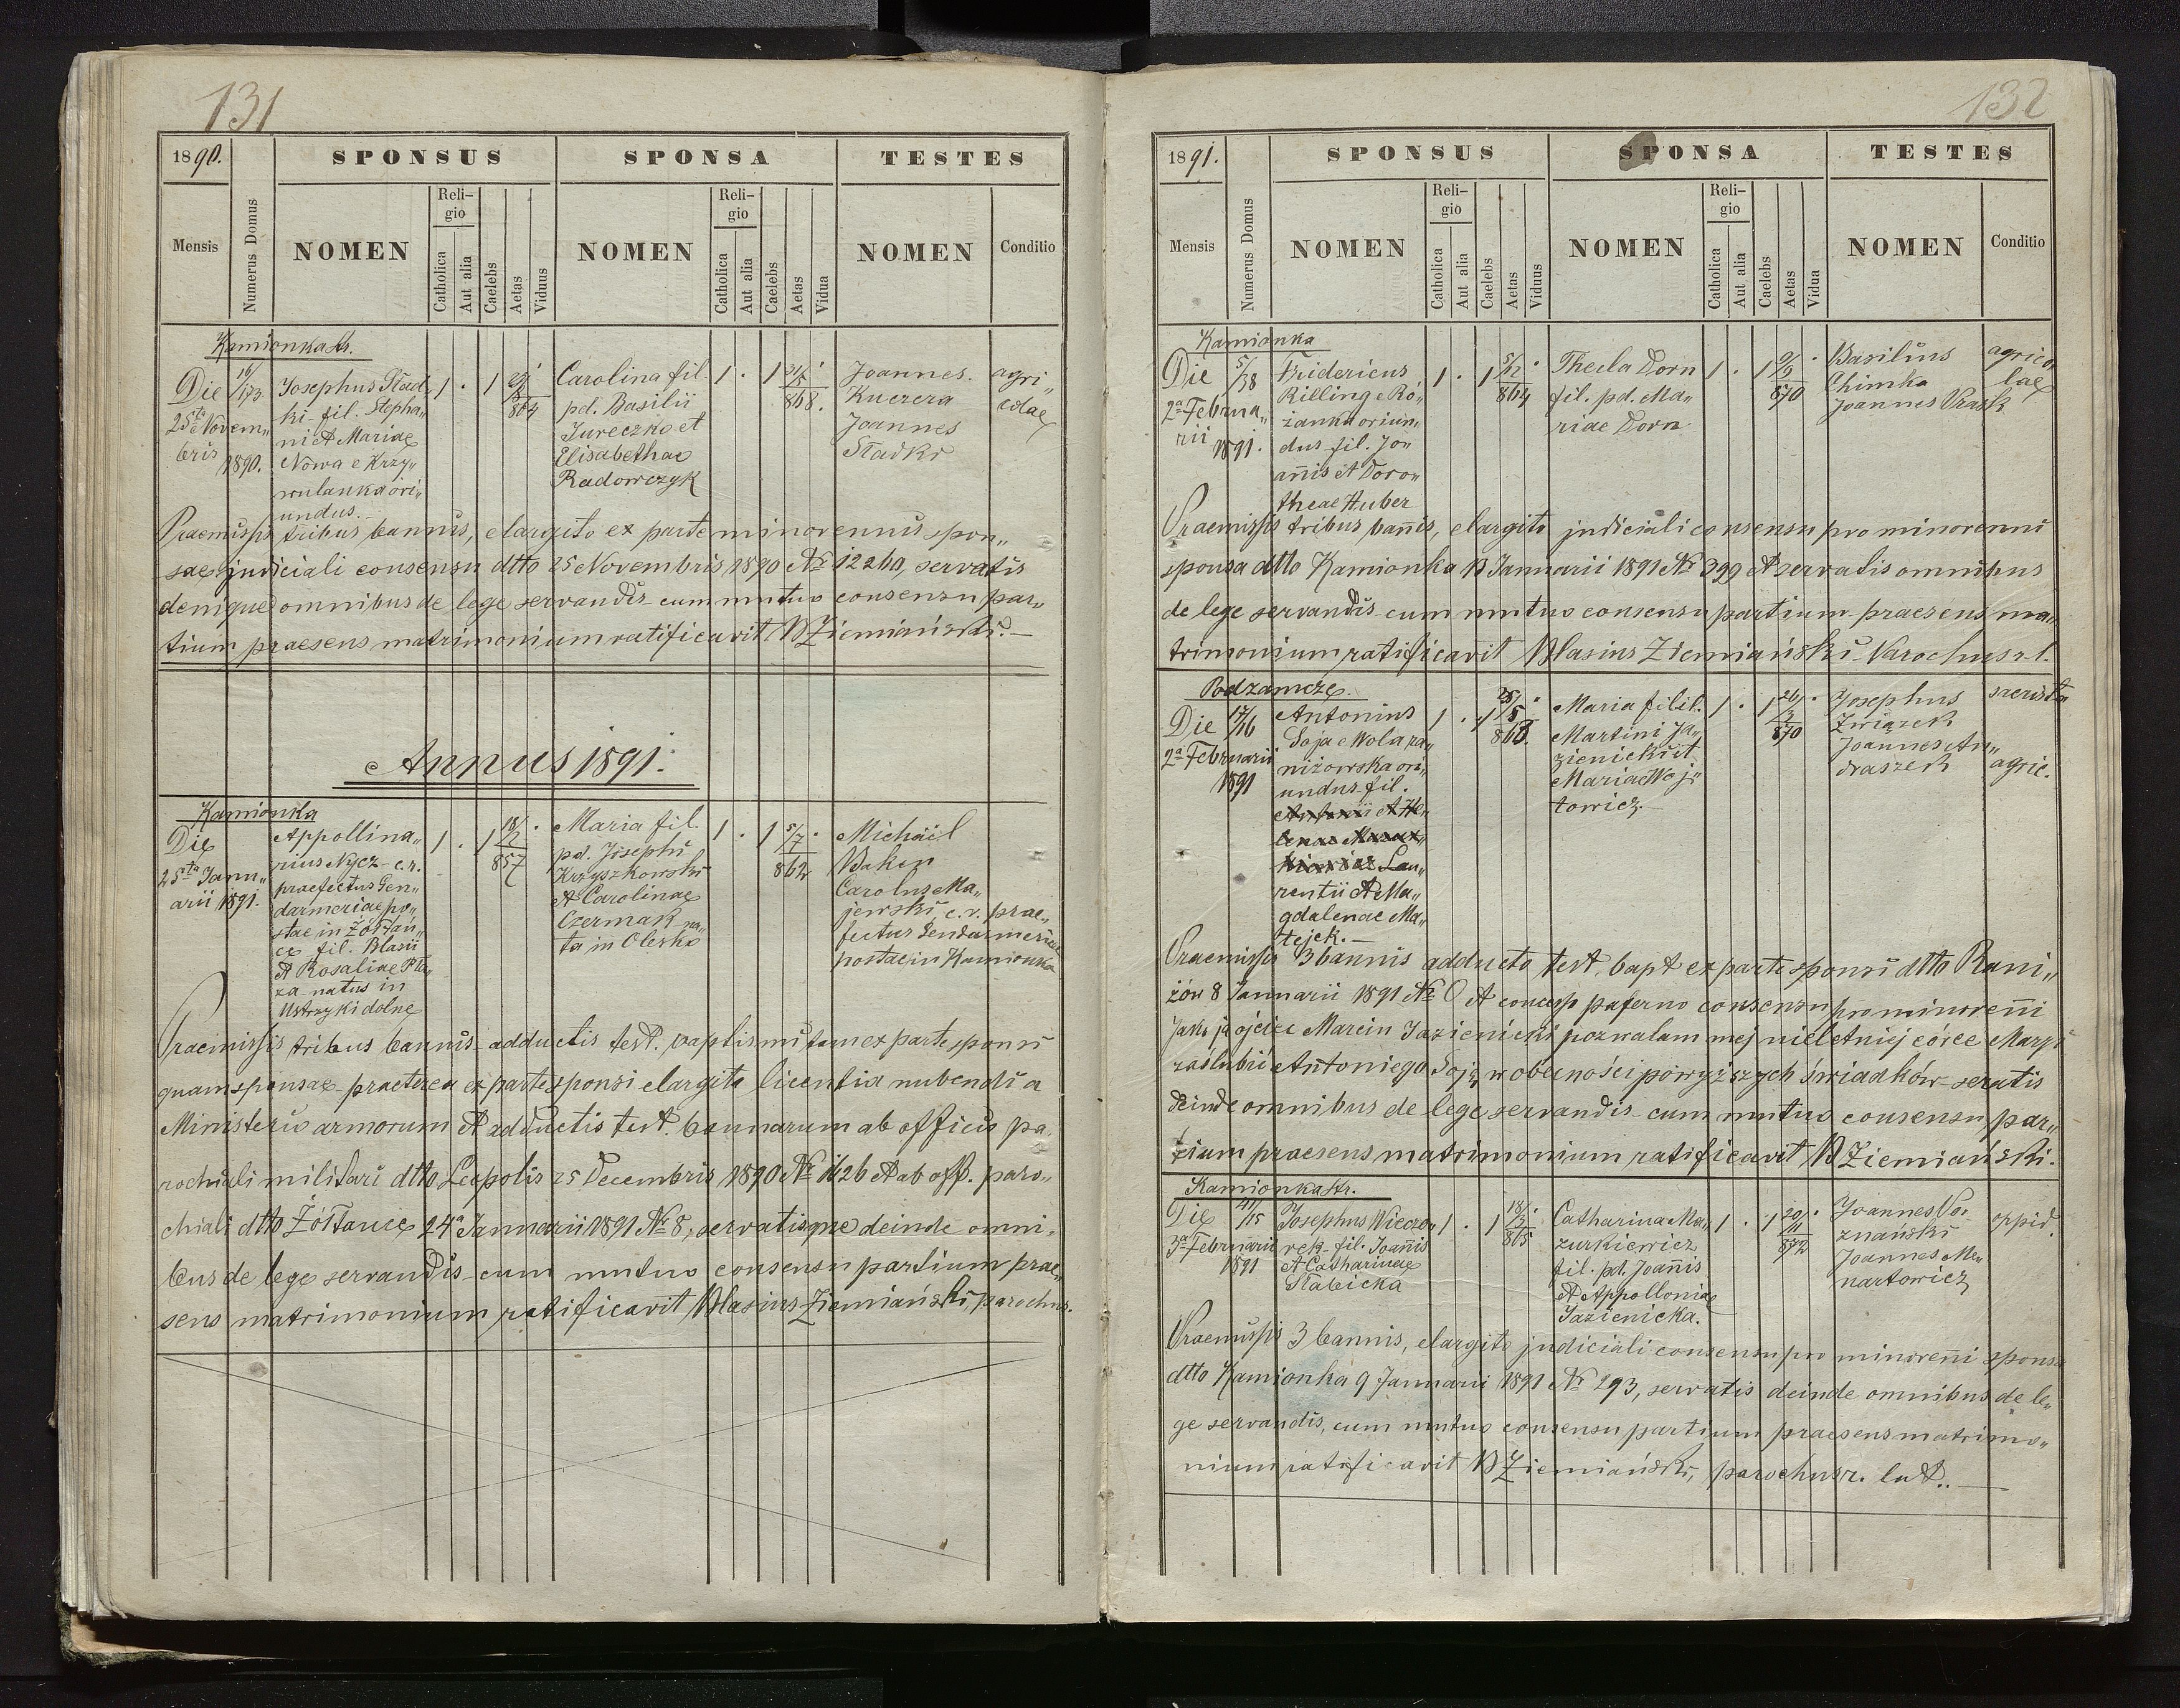 131
1890.
SPONSUS
SPONSA
TESTES
Mensis
Numerus Domus
NOMEN
Reli-
gio
Catholica
Aut alia
Caelebs
Aetas
Viduus
NOMEN
Reli-
gio
Catholica
Aut alia
Caelebs
Aetas
Vidua
NOMEN
Conditio
Kamionka str.
Die
25ta Novem„
bris
1890.
16/173
Josephus Stad„
ki fil. Stepha„
ni et Mariae
Nowa e Krzy„
wulanka ori„
undus.
1 . 1 29/3 864
Carolina fil.
pd. Basilii
Jureczko et
Elisabethae
Radowczyk
1 . 1 21/5 868.
Joannes.
Kuczera
Joannes
Stadki
agri„
colae
Praemissis tribus bannis, elargito ex parte minorennis spon„
sae judiciali consensu dtto 25 Novembris 1890 No 12260, servatis
denique omnibus de lege servandis cum mutuo consensu par„
tium praesens matrimonium ratificavit B Ziemiański. —
Annus 1891.
Kamionka
Die
25ta Janu„
arii 1891.
Appollina„
rius Nycz - c. r.
praefectus Gen„
darmeriae po„
stae in Żółtań„
ce fil. Blasii
et Rosaliae Pta„
za natus in
Ustrzyki dolne
1 . 1 18/7 857
Maria fil.
pd. Josephi
Krzyszkowski
et Carolinae
Czermak na„
ta in Olesko
1 . 1 5/7 862
Michäil
Baken
Carolus Ma„
jewski, c. r. prae„
fectus Gendarmeriae
postae in Kamionka
Praemissis tribus bannis adductis test. baptismi tam ex parte sponsi
quam sponsae praeterea ex parte sponsi elargita licentia nubendi a
Ministerio armorum et adductis test. bannarum ab officio pa„
rochiali militari dtto Leopolis 25 Decembris 1890 No 1626 et ab off. paro„
chiali dtto Żółtańce 24a Januarii 1891 No 8, servatisque deinde omni„
bus de lege servandis cum mutuo consensu partium prae„
sens matrimonium ratificavit Blasius Ziemiański, parochus.
132
1891.
SPONSUS
SPONSA
TESTES
Mensis
Numerus Domus
NOMEN
Reli-
gio
Catholica
Aut alia
Caelebs
Aetas
Viduus
NOMEN
Reli-
gio
Catholica
Aut alia
Caelebs
Aetas
Vidua
NOMEN
Conditio
Kamionka
Die
2a Februa„
rii
1891.
5/38
Fridericus
Rilling e Ró„
żanka oriun„
dus fil. Jo„
annis et Doro„
theae Huber
1 . 1 5/12 864
Thecla Dorn
fil. pd. Ma„
riae Dorn
1 . 1 9/9 870
Basilius
Chimka
Joannes Krask
agrico„
lae
Praemissis tribus bannis, elargito judiciali consensu pro minorenni
sponsa dtto Kamionka 13 Januarii 1891 No 299 et servatis omnibus
de lege servandis cum mutuo consensu partium praesens ma„
trimonium ratificavit Blasius Ziemiański Parochus r. l.
Podzamcze.
Die
2a Februarii
1891
17/16
Antonius
Soja e Wola ra„
niżowska ori„
undus fil.
Antonii et He„
lenae
Lau„
rentii et Ma„
gdalenae Ma„
tejek. —
1 . 1 25/5 863.
Maria filil.
Martini Ja„
zienicki et
Mariae Woj„
towicz. —
1 . 1 26/3 870
Josephus
Związek
Joannes An„
draszek
sacrista
agric.
Praemissis 3 bannis adducto test. bapt ex parte sponsi dtto Rani„
żów 8 Januarii 1891 No 0 et concess paterno consensu pro minorenni
Jako ja ojciec Marcin Jazienicki pozwalam mej nieletniej córce Maryi
zaślubić Antoniego Soję w obecności powyższych świadków - servatis
deinde omnibus de lege servandis cum mutuo consensu par„
tium praesens matrimonium ratificavit B Ziemiański.
Kamionka str.
Die
3a Februarii
1891
41/15
Josephus Wieczo„
rek fil. Joannis
et Catharinae
Stabicka
1 . 1 18/3 865
Catharina Ma„
zurkiewicz
fil. pd. Joannis
et Appolloniae
Jazienicka.
1 . 1 20/11 872
Joannes Po„
znański
Joannes Me„
nartowicz
oppid.
Praemissis 3 bannis, elargito judiciali consensu pro minorenni sponsa
dtto Kamionka 9 Januarii 1891 No 293, servatis deinde omnibus de le„
ge servandis, cum mutuo consensu partium praesens matrimo„
nium ratificavit B Ziemiański, parochus r. lat. —